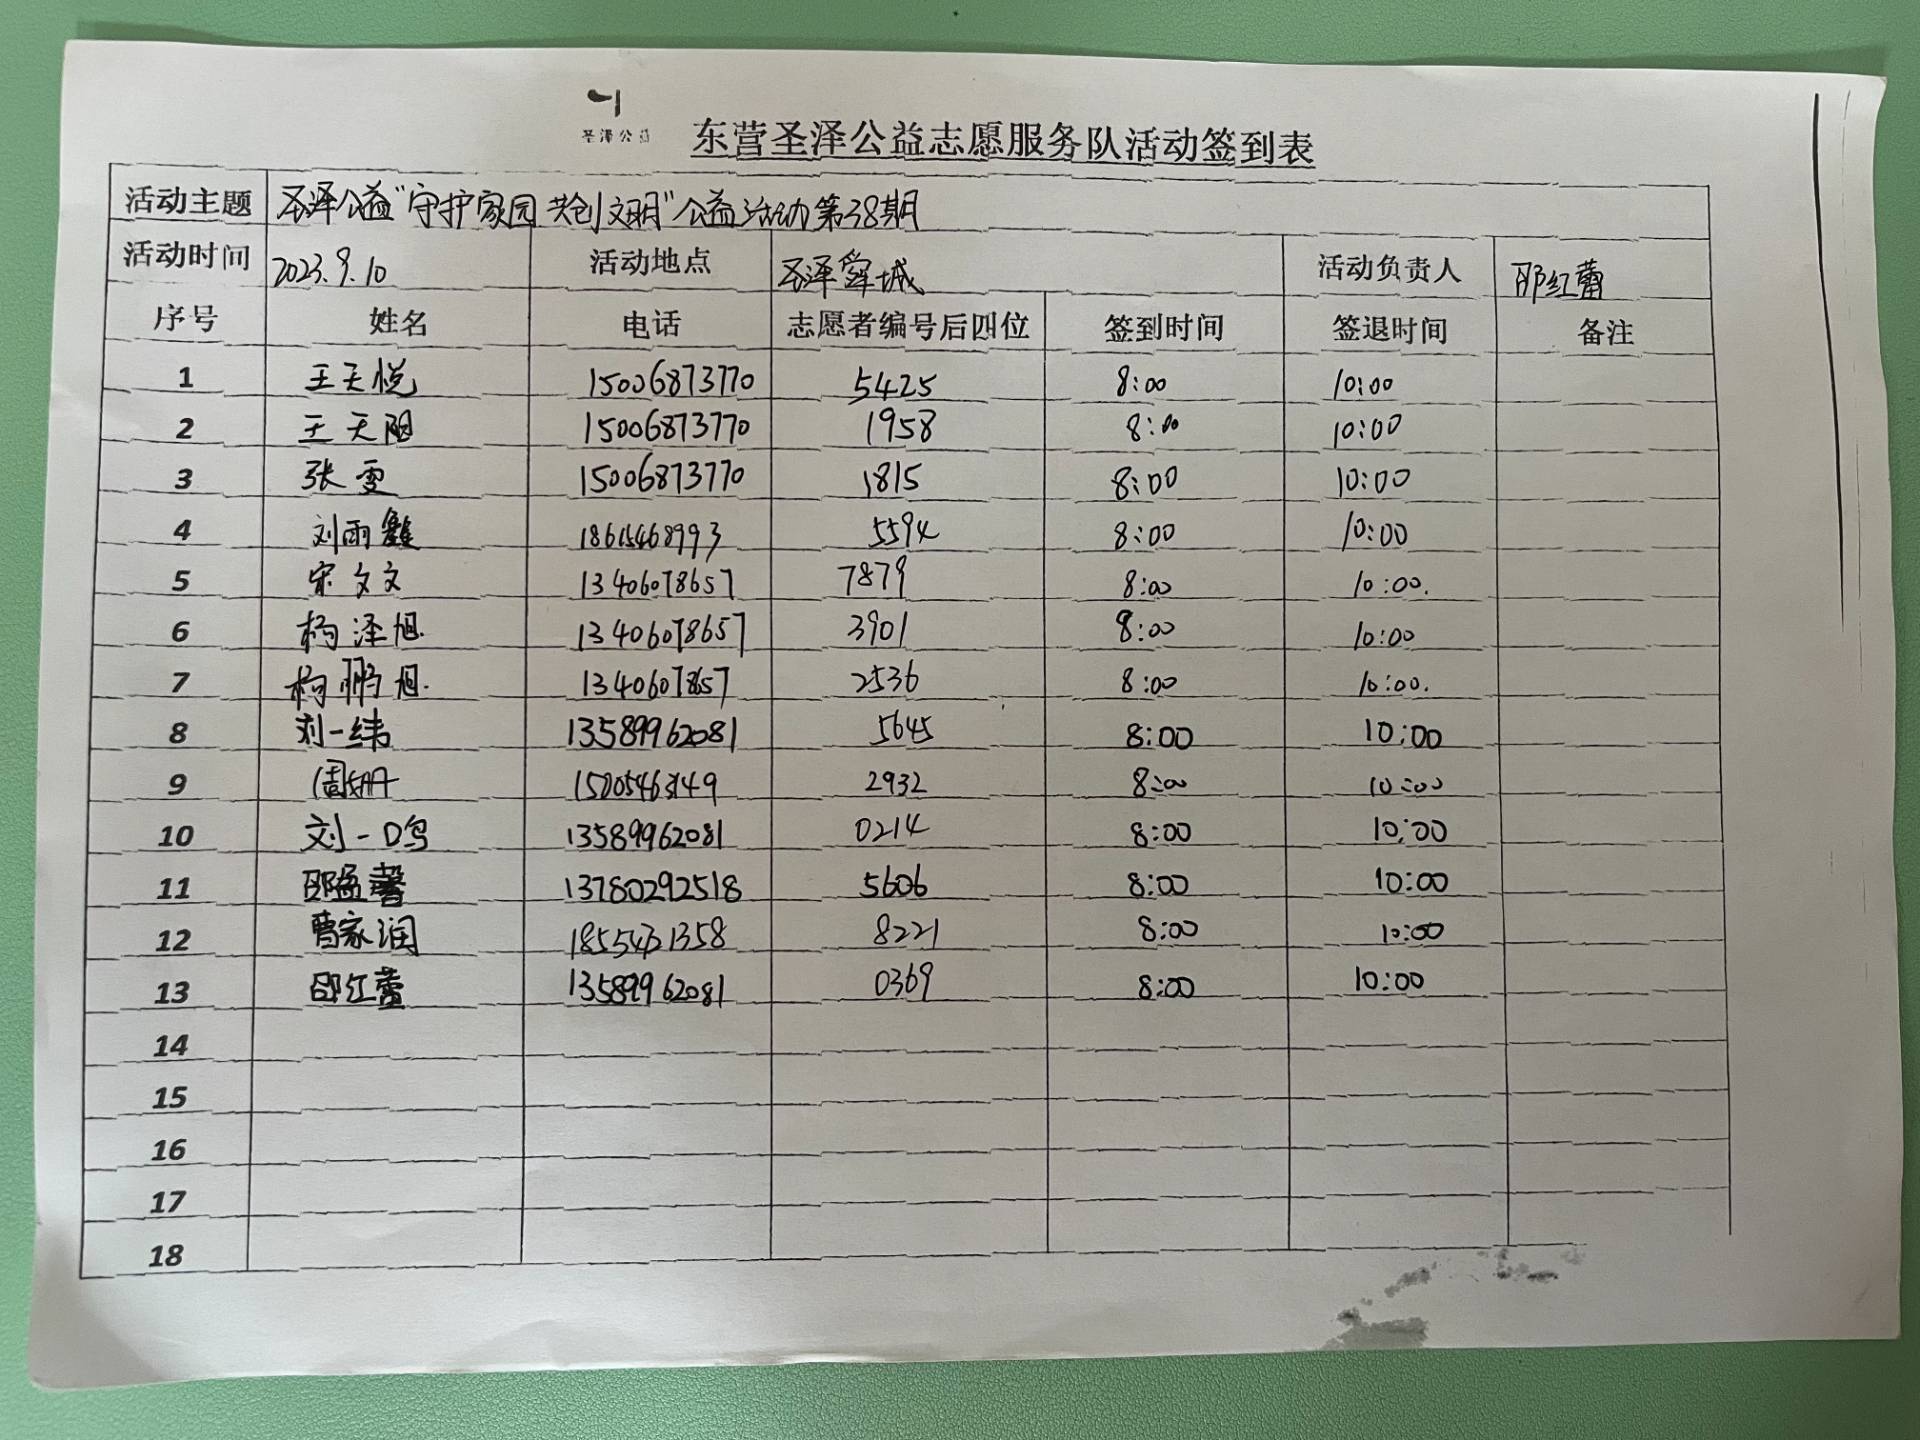 圣泽公益
东营圣泽公益志愿服务队活动签到表
活动主题 圣泽公益“守护家园 共创文明”公益活动第38期
活动时间 2023.9.10 活动地点 圣泽舜城 活动负责人 邵红蕾
序号 姓名 电话 志愿者编号后四位 签到时间 签退时间 备注
1 王天悦 15006873770 5425 8:00 10:00
2 王天阳 15006873770 1958 8:00 10:00
3 张雯 15006873770 1815 8:00 10:00
4 刘雨 18615468993 5594 8:00 10:00
5 宋文文 13406078657 7879 8:00 10:00.
6 杨泽旭. 13406078657 3901 8:00 10:00
7 杨鹏旭. 13406078657 2536 8:00 10:00.
8 刘一纬 13589962081 5645 8:00 10:00
9 周姗 2932 8:00 10:00
10 刘一鸣 13589962081 0214 8:00 10:00
11 邵孟馨 13780292518 5606 8:00 10:00
12 曹家润 8221 8:00 10:00
13 邵红蕾 13589962081 0369 8:00 10:00
14
15
16
17
18